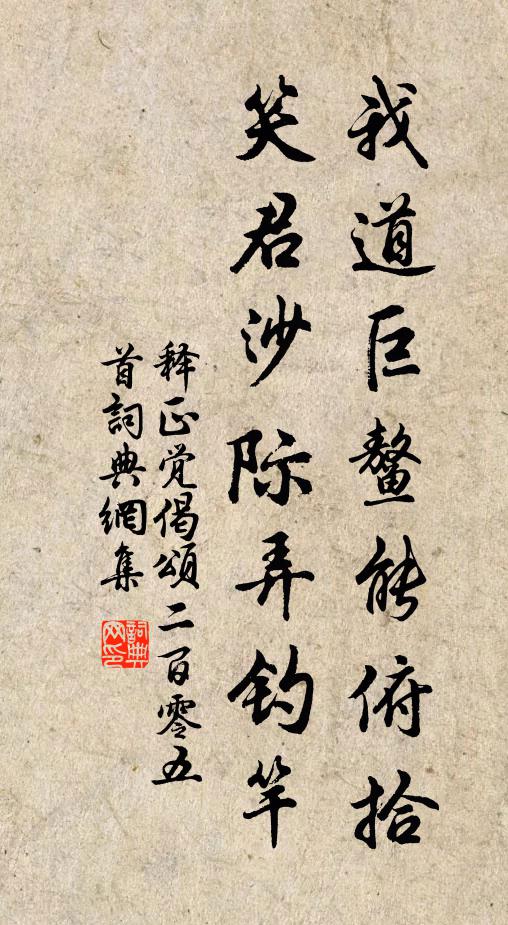 我道巨鳌能俯拾
笑君沙际弄钓竿
释正觉偈颂二百零五
首詞典網集
詞典
网印